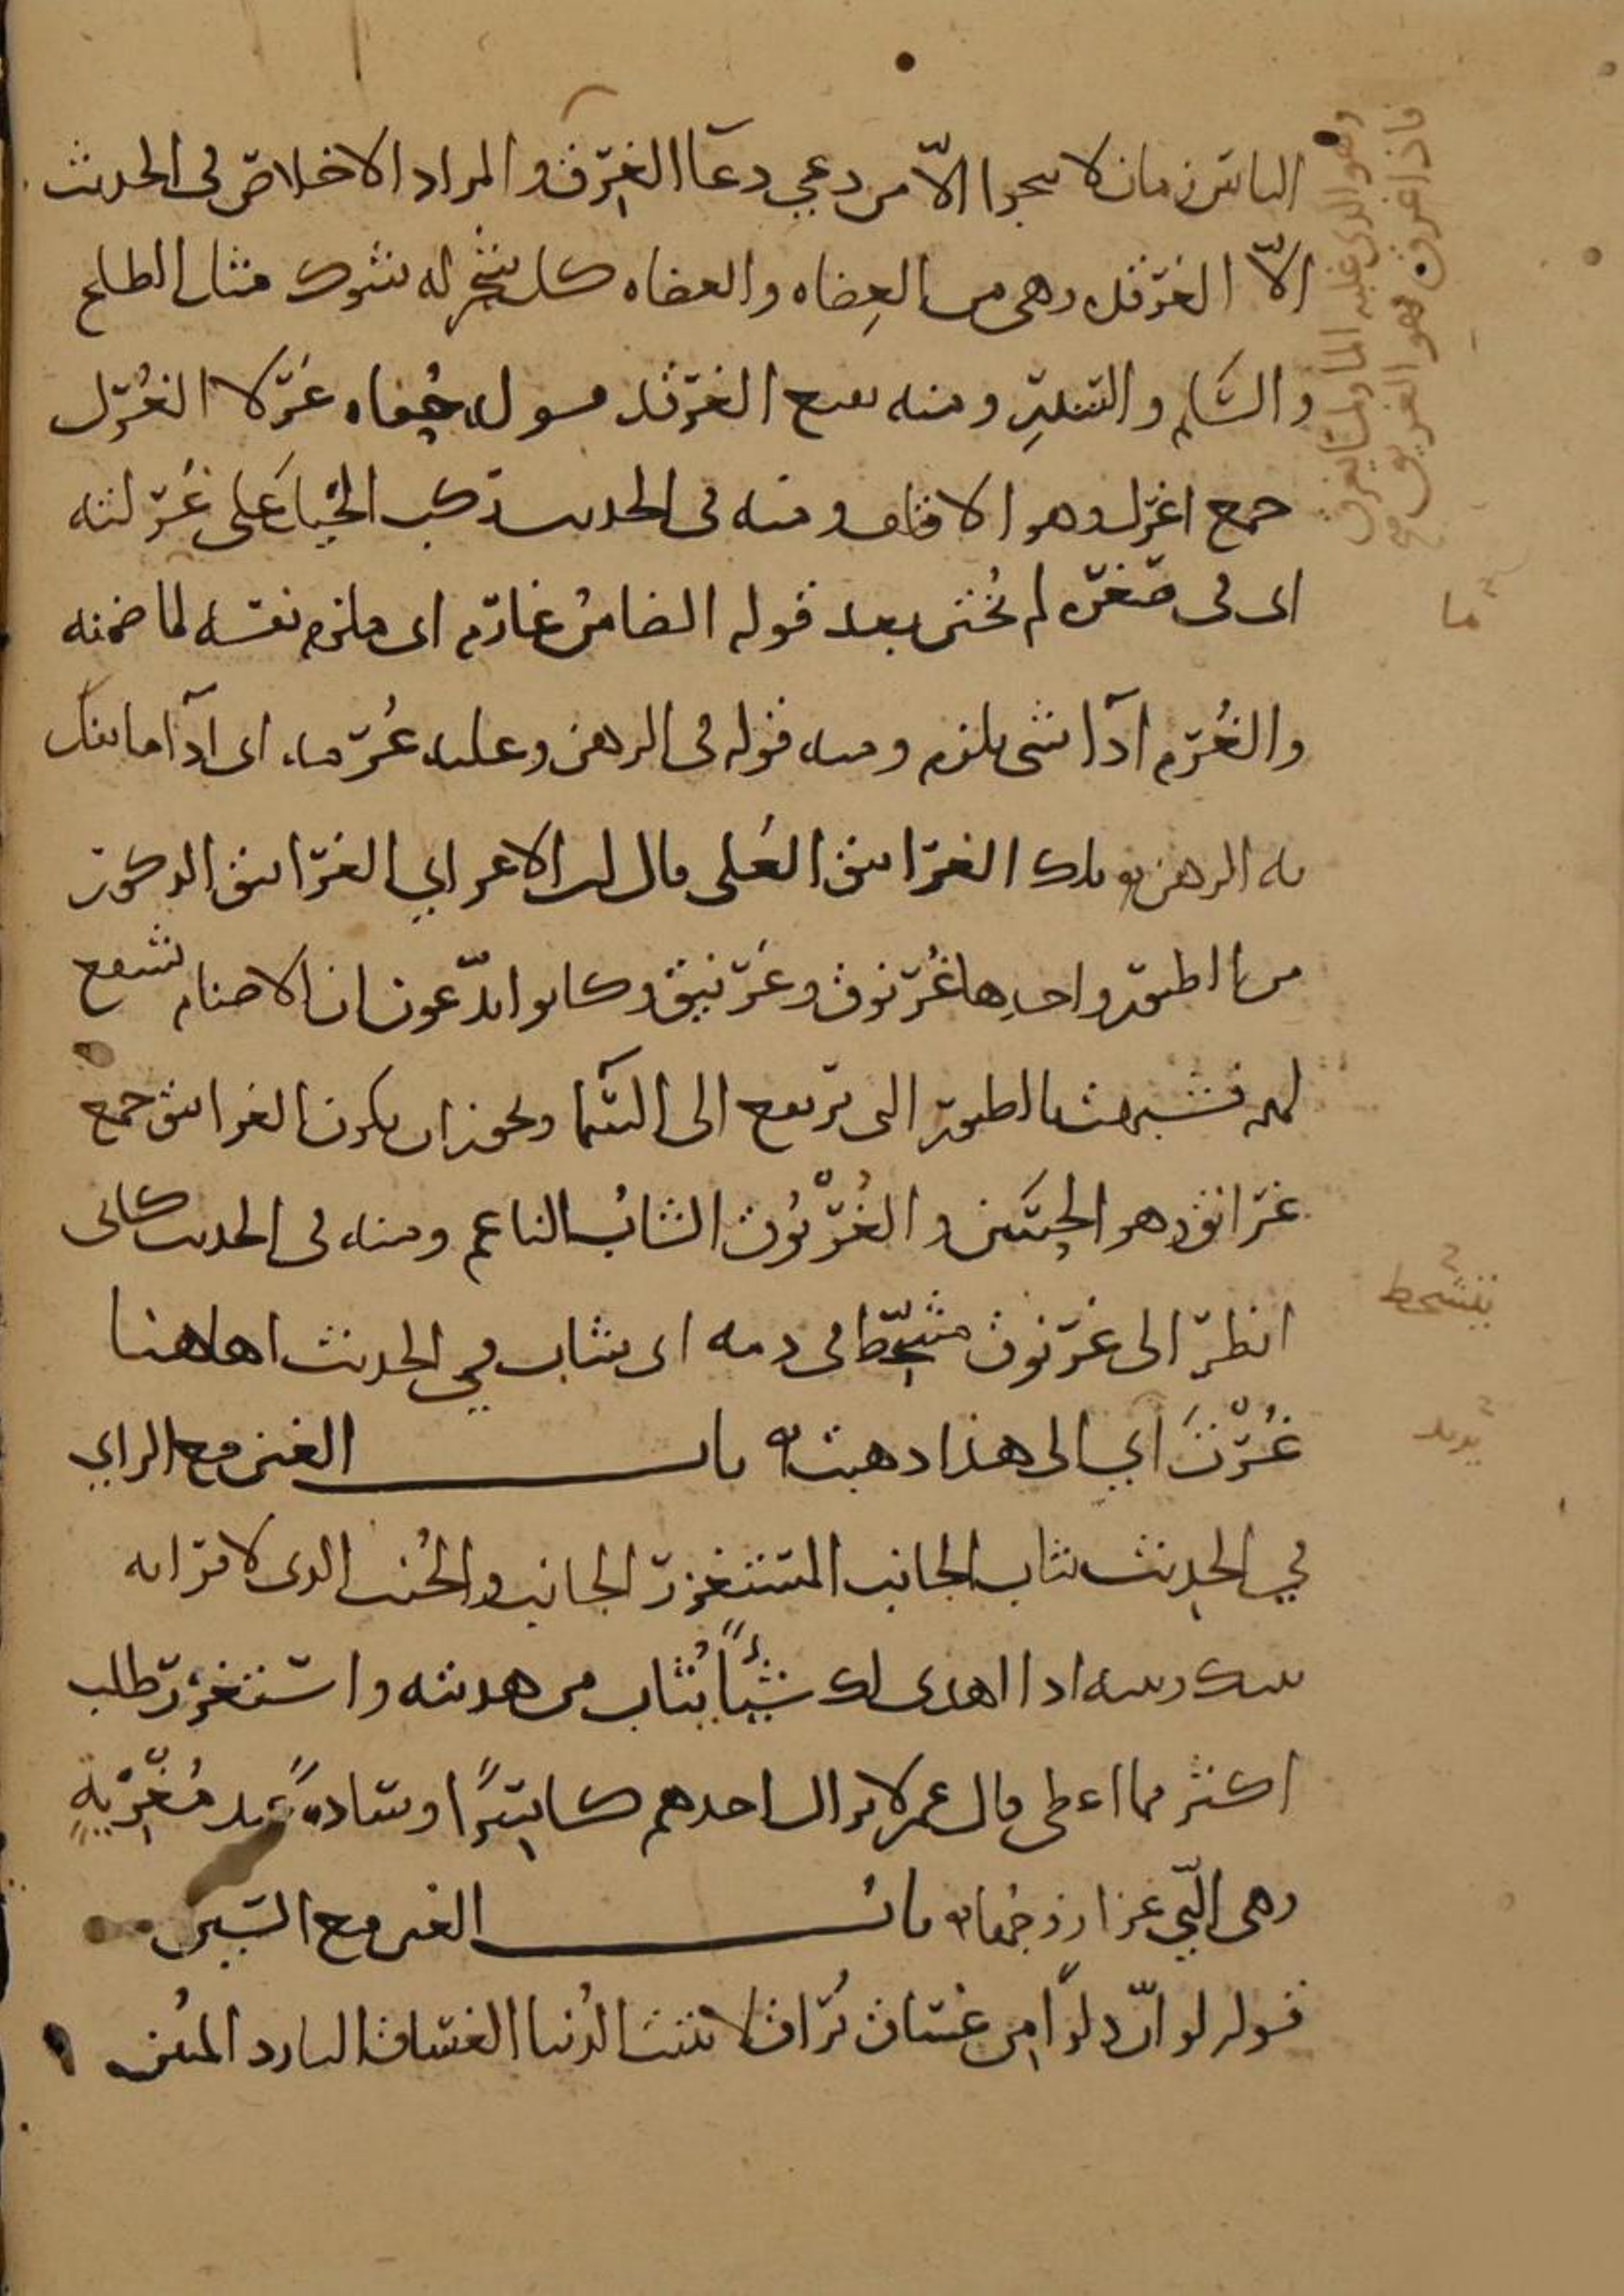 الناس زمان لا ينجوا الّا من دعي دعآا الغرق والمراد الاخلاص في الحديث
الّا الغرقد وهي من العِضاه والعضاه كل شجر له شوك مثل الطلح
والسَّلم والسدر ومنه بقيع الغرقد حفاه غرلا الغُرل
جمع اغرل وهو الاقلف ومنه في الحديث ركب الخيل على غُرلته
اى فى صغره لم يُختن بعد قوله الضامن غارم اى ملزم نفسه لما ضمنه
والغُرم ادآا شى يلزم ومنه قوله فى الرهن وعليه غُرمه اى ادآا ما ينفك
به الرهن تلك الغرانيق العُلى قال ابن الاعرابي الغرانيق الذكور
من الطيور واحدها غُرنوق وغُرنيق وكانوا يدّعون ان الاصنام تشفع
لهم فشبهت بالطيور التى ترتفع الى السمآ ويجوز ان يكون الغرانيق جمع
غرانق وهو الحسن والغُرْنُوق الشابُ الناعم ومنه فى الحديث كانى
انظر الى غرنوق متشحّط فى دمه اى شاب في الحديث اها هنا
غُرْتَ اي الى هذا ذهبت باب الغين مع الزاي
في الحديث يثاب الجانب المستغزر الجانب والجُنب الذى لا قرابه
بينك وبينه اذا اهدى لك شيئًا يُثاب من هديته واستغزر طلب
اكثر مما اعطى قال عمر لا يزال احدهم كاسرًا وساده عند مُغْزِيةٍ
وهى الّتي غزا زوجها باب الغين مع السين
قوله لو انّ دلوًا من غساق يُراق لانتنت الدُنيا الغساق البارد المُنتن
وهو الذى غلبه المآ ولمّا يغرق
فاذا غرق فهو الغريق
ما
يتشحط
يريد